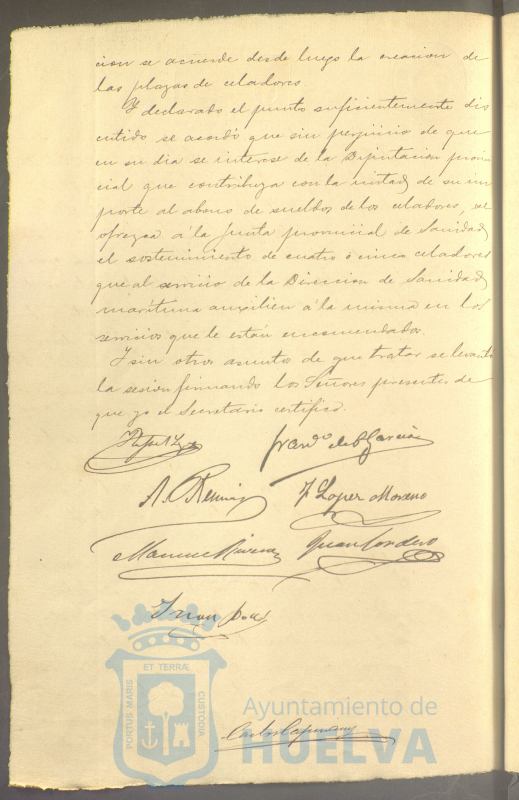 cion se acuerde desde luego la creacion de
las plazas de celadores.
Y declarado el punto suficientemente dis
cutido se acordó que sin perjuicio de que
en su dia se interese de la Diputacion provin
cial que contribuya con la mitad de su im
porte al abono de sueldos de los celadores, se
ofrezca á la Junta provincial de Sanidad
el sostenimiento de cuatro ó cinco celadores
que al servicio de la Direccion de Sanidad
maritima auxilien á la misma en los
servicios que le están encomendados.
Y sin otros asuntos de que tratar se levantó
la sesion firmando los Señores presentes de
que yo el Secretario certifico.
Rafael
Franco de P. Garcia
A.
F. Lopez Moreno
Manuel
Juan Cordero
Juan
PORTUS MARIS ET TERRÆ CUSTODIA
Ayuntamiento de
HUELVA
Carlos